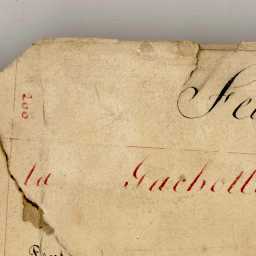 200
Fe
la Gachott